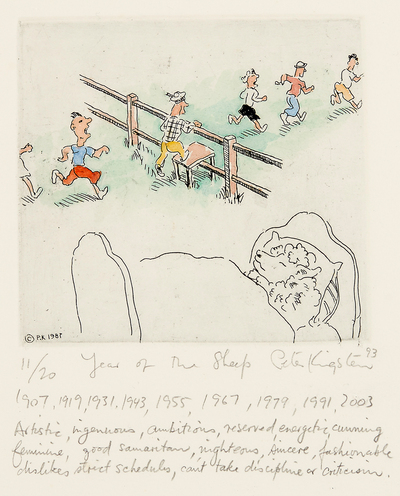 © P.K 1987
11/20 Year of the Sheep Peter Kingston 93
1907, 1919, 1931, 1943, 1955, 1967, 1979, 1991, 2003
Artistic, ingenuous, ambitious, reserved energetic, cunning
feminine, good samaritan, righteous, sincere, fashionable
dislikes strict schedules, cant take discipline or criticism.